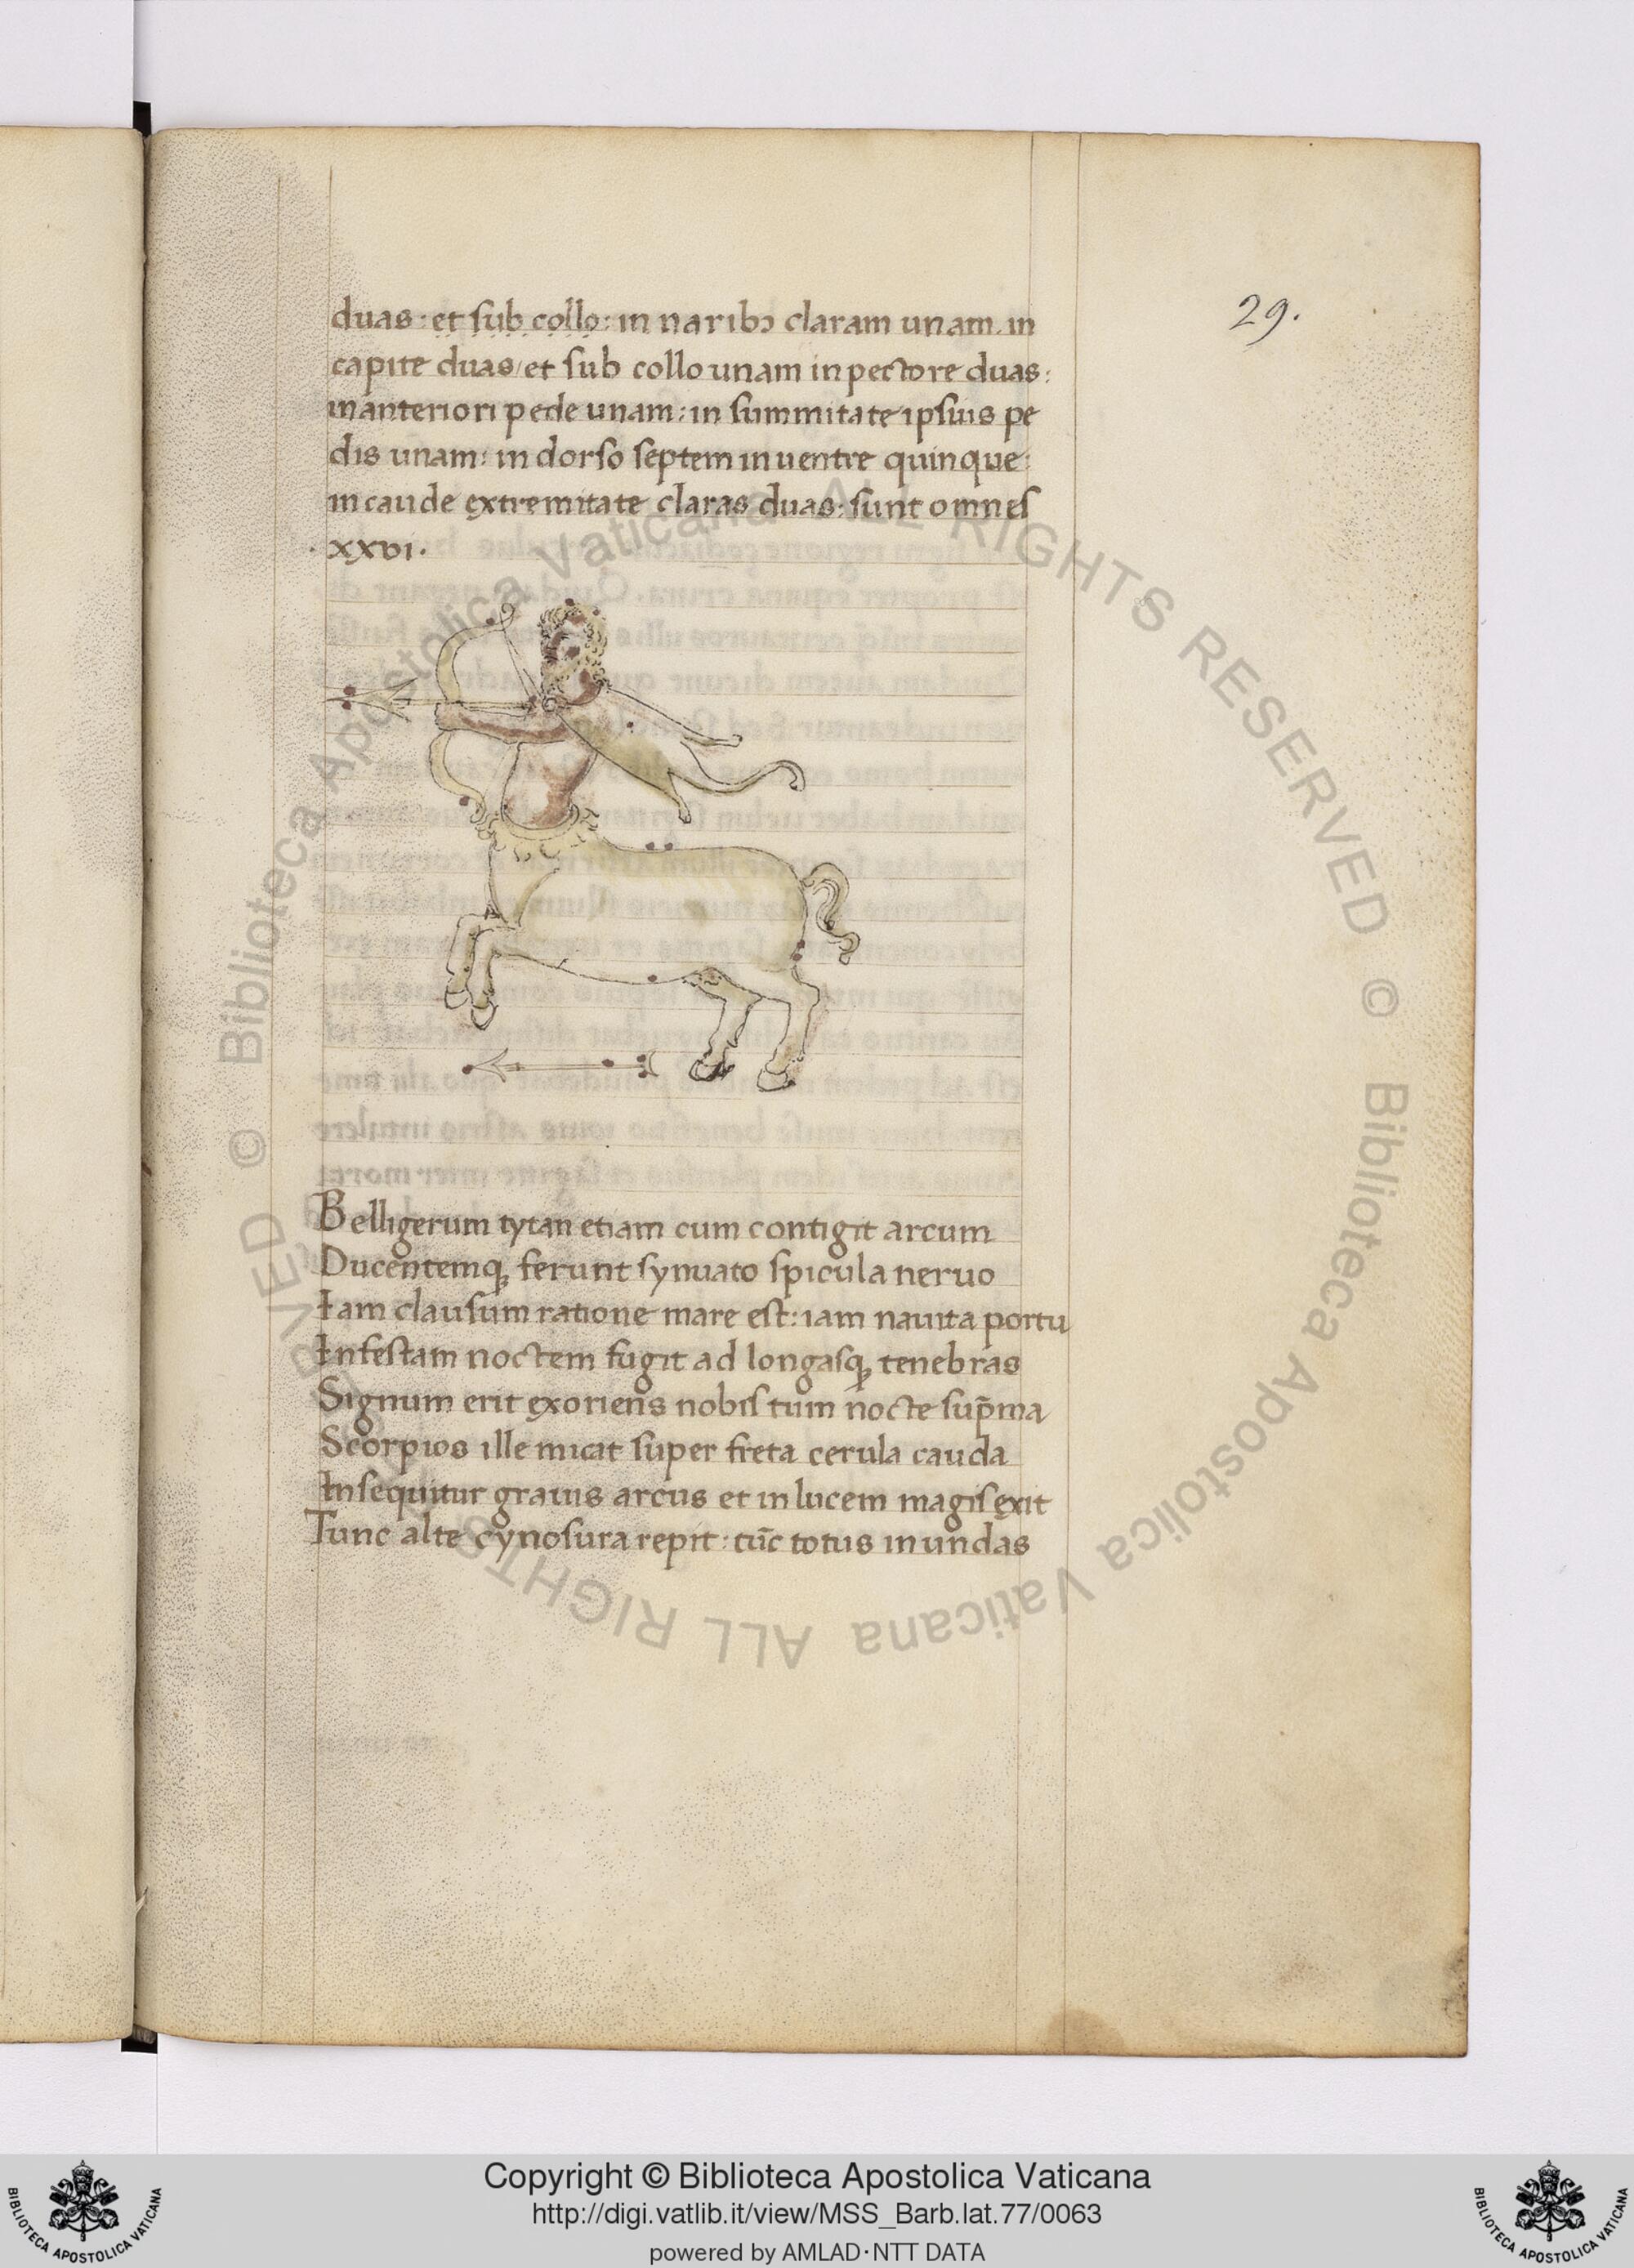 29.
duas: et sub collo: in naribꝫ claram unam. in
capite duas/et sub collo unam in pectore duas:
in anteriori pede unam: in summitate ipsius pe
dis unam: in dorso septem in uentre quinque:
in caude extremitate claras duas: sunt omnes
·xxvi·
Belligerum tytan etiam cum contigit arcum
Ducentemqꝫ ferunt synuato spicula neruo
Iam clausum ratione mare est: iam nauita portu
Infestam noctem fugit ad longasqꝫ tenebras
Signum erit exoriens nobis tum nocte sup̄ma
Scorpios ille micat super freta cerula cauda
Insequitur grauis arcus et in lucem magis exit
Tunc alte cynosura repit: tūc totus in undas
© Biblioteca Apostolica Vaticana ALL RIGHTS RESERVED © Biblioteca Apostolica Vaticana ALL RIGHTS RESERVED
Copyright © Biblioteca Apostolica Vaticana
http://digi.vatlib.it/view/MSS_Barb.lat.77/0063
powered by AMLAD·NTT DATA
BIBLIOTECA APOSTOLICA VATICANA
BIBLIOTECA APOSTOLICA VATICANA